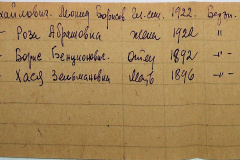 Михайлович. Леонид Борисов. Гл. сем. 1922. Безп.
– Роза Абрамовна жена 1922 "
– Борис Бенционович. отец 1892 –"–
– Хася Зельмановна мать 1896 –"–